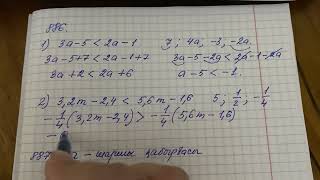 886.
1) 3a-5 < 2a-1
7; 4a, -3, -2a.
3a-5+7 < 2a-1+7
3a-5-2a < 2a-1-2a
3a+2 < 2a+6
a-5 < -1.
2) 3,2m-2,4 < 5,6m-1,6
5; 1/2; -1/4
-1/4(3,2m-2,4) > -1/4(5,6m-1,6)
887
қабырғасы